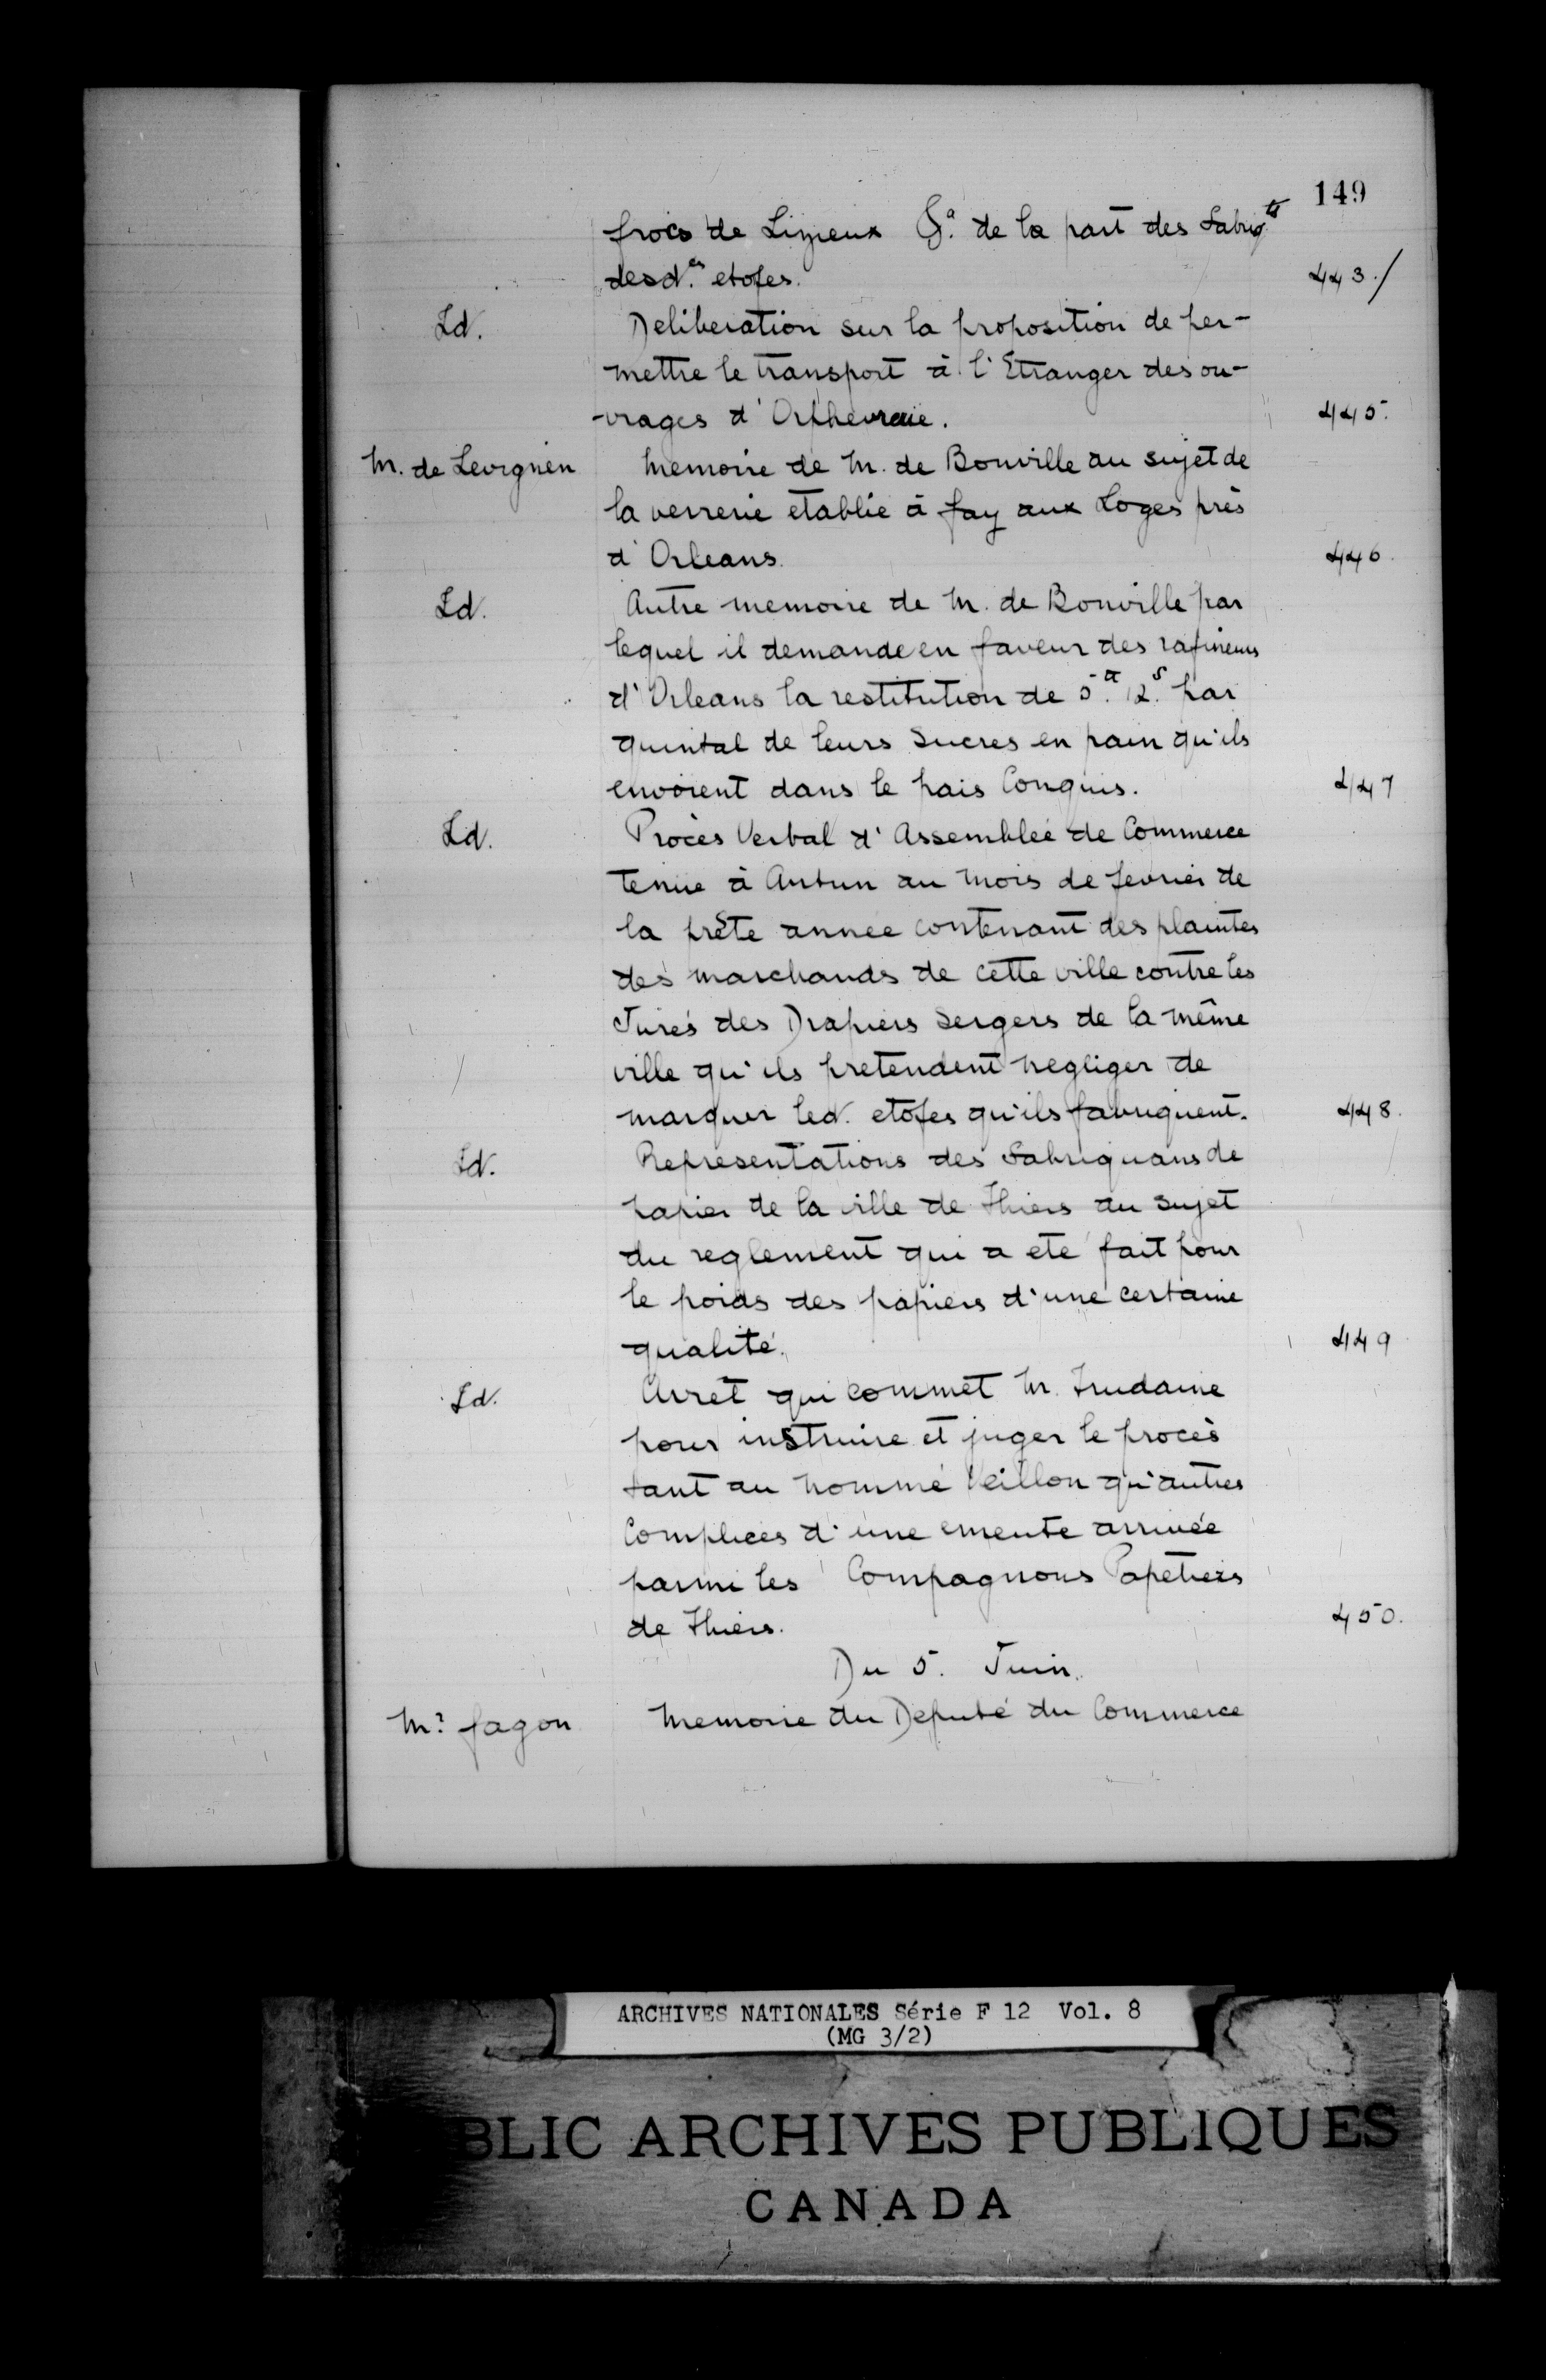 149
frocs de Lizieux &a. de la part des fabriqts
desd.es etofes. 443./
Id. Deliberation sur la proposition de per-
mettre le transport à l'Etranger des ou-
-vrages d'Orphevrerie. 445.
M. de Levignen Memoire de M. de Bouville au sujet de
la verrerie etablie à fay aux Loges près
d'Orleans. 446.
Id. Autre memoire de M. de Bouville par
lequel il demande en faveur des rafineurs
d'Orleans la restitution de 5.tt 12.s par
quintal de leurs Sucres en pain qu'ils
envoient dans le pais Conquis. 447
Id. Procès Verbal d'Assemblée de Commerce
tenue à Autun au mois de fevrier de
la prste année contenant des plaintes
des marchands de cette ville contre les
Jurés des Drapiers Sergers de la même
ville qu'ils pretendent negliger de
marquer led. etofes qu'ils fabriquent. 448.
Id. Representations des fabriquans de
papier de la ville de Thiers au sujet
du reglement qui a eté fait pour
le poids des papiers d'une certaine
qualité. 449
Id. Arrêt qui commet M. Trudaine
pour instruire et juger le procès
tant au nommé Veillon qu'autres
Complices d'une emeute arrivée
parmi les Compagnons Papetiers
de Thiers. 450.
Du 5. Juin.
Mr. fagon Memoire du Deputé du Commerce
ARCHIVES NATIONALES Série F 12 Vol. 8
(MG 3/2)
BLIC ARCHIVES PUBLIQUES
CANADA